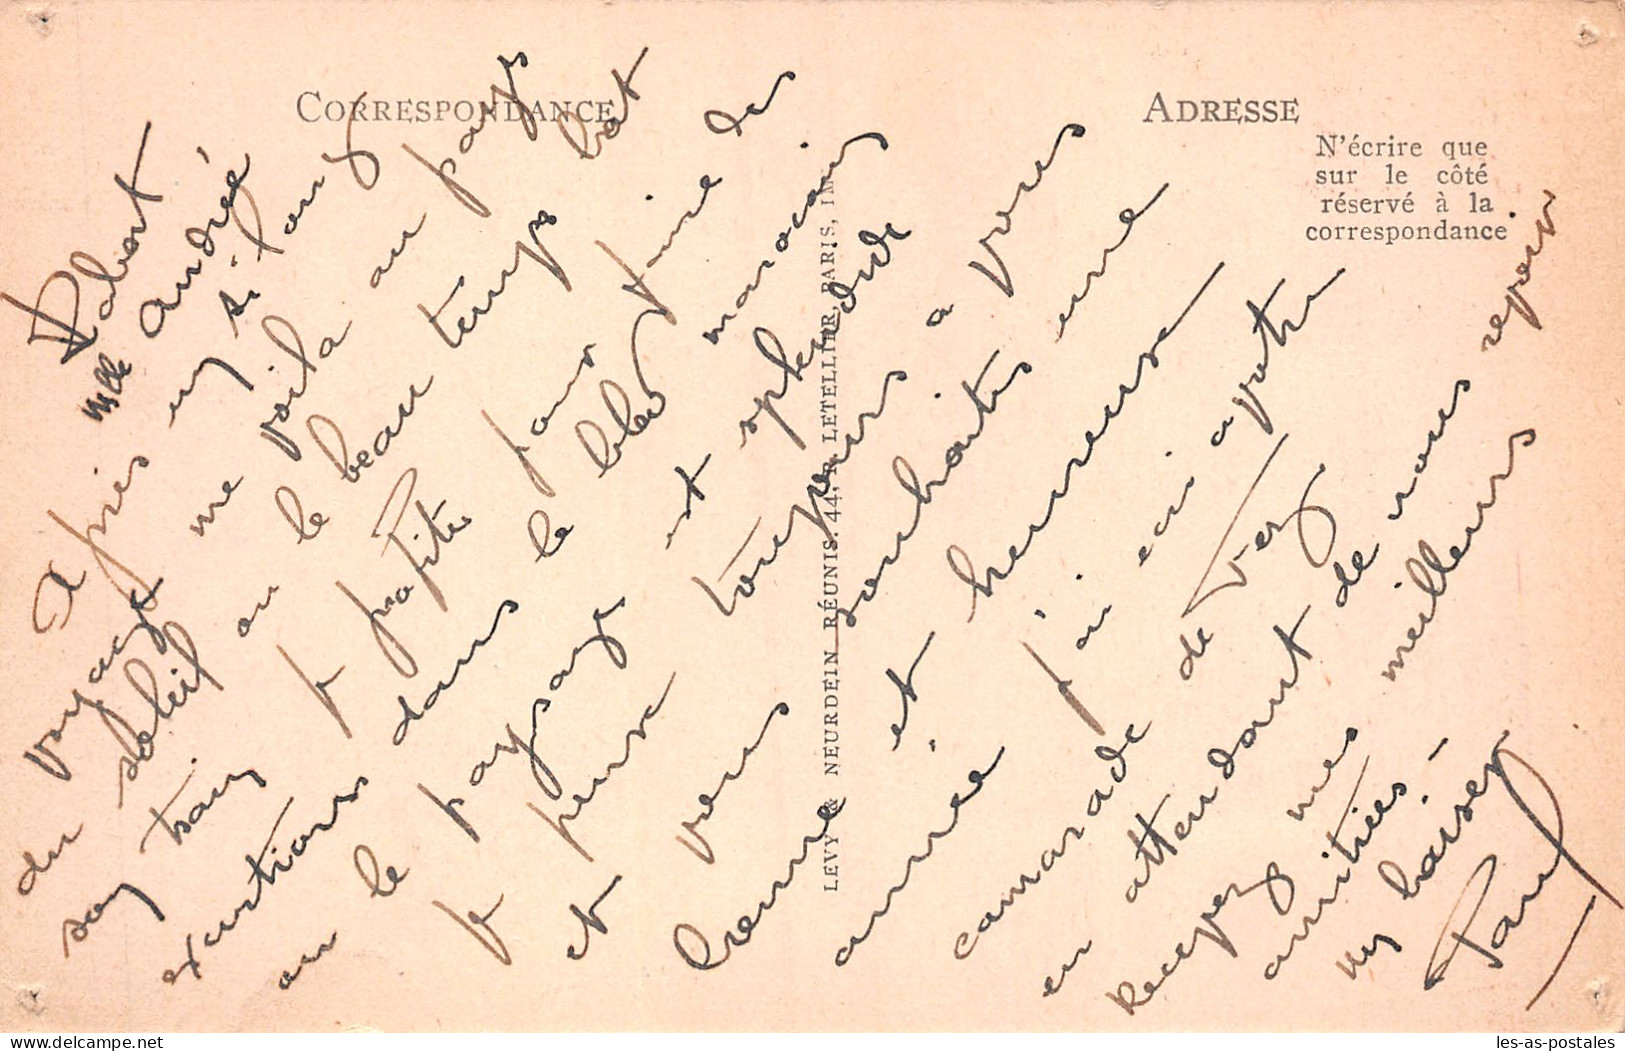 CORRESPONDANCE
ADRESSE
N'écrire que
sur le côté
réservé à la
correspondance
LEVY & NEURDEIN RÉUNIS, 44, LETELLIER, PARIS, IMP
Robert
Mlle Andrée
Après un si long
voyage me voilà au pays
du soleil ou le beau temps bat
son train. Je profite pour faire des
excurtions dans le bled marocain
ou le paysage est splendide
Je pense toujours à vous
et vous souhaites une
bonne et heureuse
année. j'ai écri a votre
camarade de Verg
en attendant de vous revoir
Recevez mes meilleurs
amitiées -
un baiser
Paul
les-as-postales